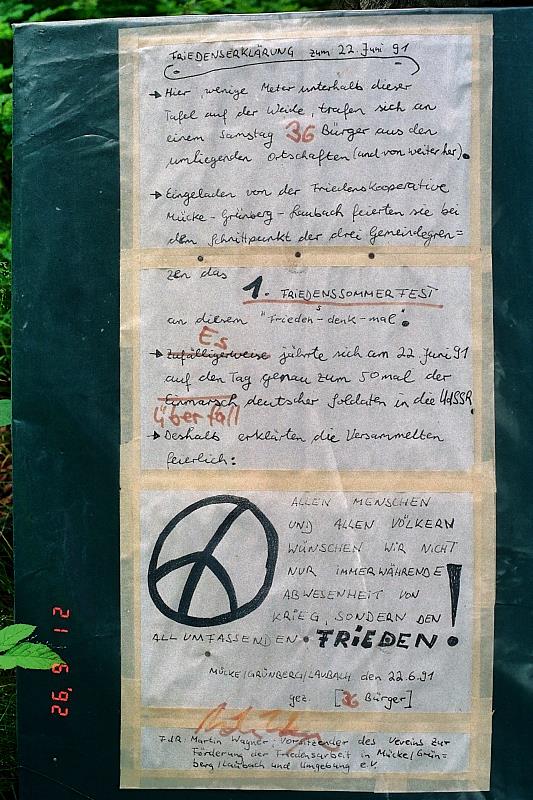 FRIEDENSERKLÄRUNG zum 22. Juni 91
→ Hier, wenige Meter unterhalb dieser
Tafel auf der Weide, trafen sich an
einem Samstag 36 Bürger aus den
umliegenden Ortschaften (und von weiter her).
→ Eingeladen von der Friedenskooperative
Mücke-Grünberg-Laubach feierten sie bei
dem Schnittpunkt der drei Gemeindegren=
zen das
1. FRIEDENSSOMMERFEST
an diesem "Friedens-denk-mal".
Es
→ Zufälligerweise jährte sich am 22. Juni 91
auf den Tag genau zum 50 mal der
Einmarsch deutscher Soldaten in die UdSSR.
Überfall
→ Deshalb erklärten die Versammelten
feierlich:
ALLEN MENSCHEN
UND ALLEN VÖLKERN
WÜNSCHEN WIR NICHT
NUR IMMERWÄHRENDE
ABWESENHEIT VON
KRIEG, SONDERN DEN
ALLUMFASSENDEN FRIEDEN!
MÜCKE/GRÜNBERG/LAUBACH den 22.6.91
gez. [36 Bürger]
F.d.R. Martin Wagner Vorsitzender des Vereins zur
Förderung der Friedensarbeit in Mücke/Grün-
berg/Laubach und Umgebung e.V.